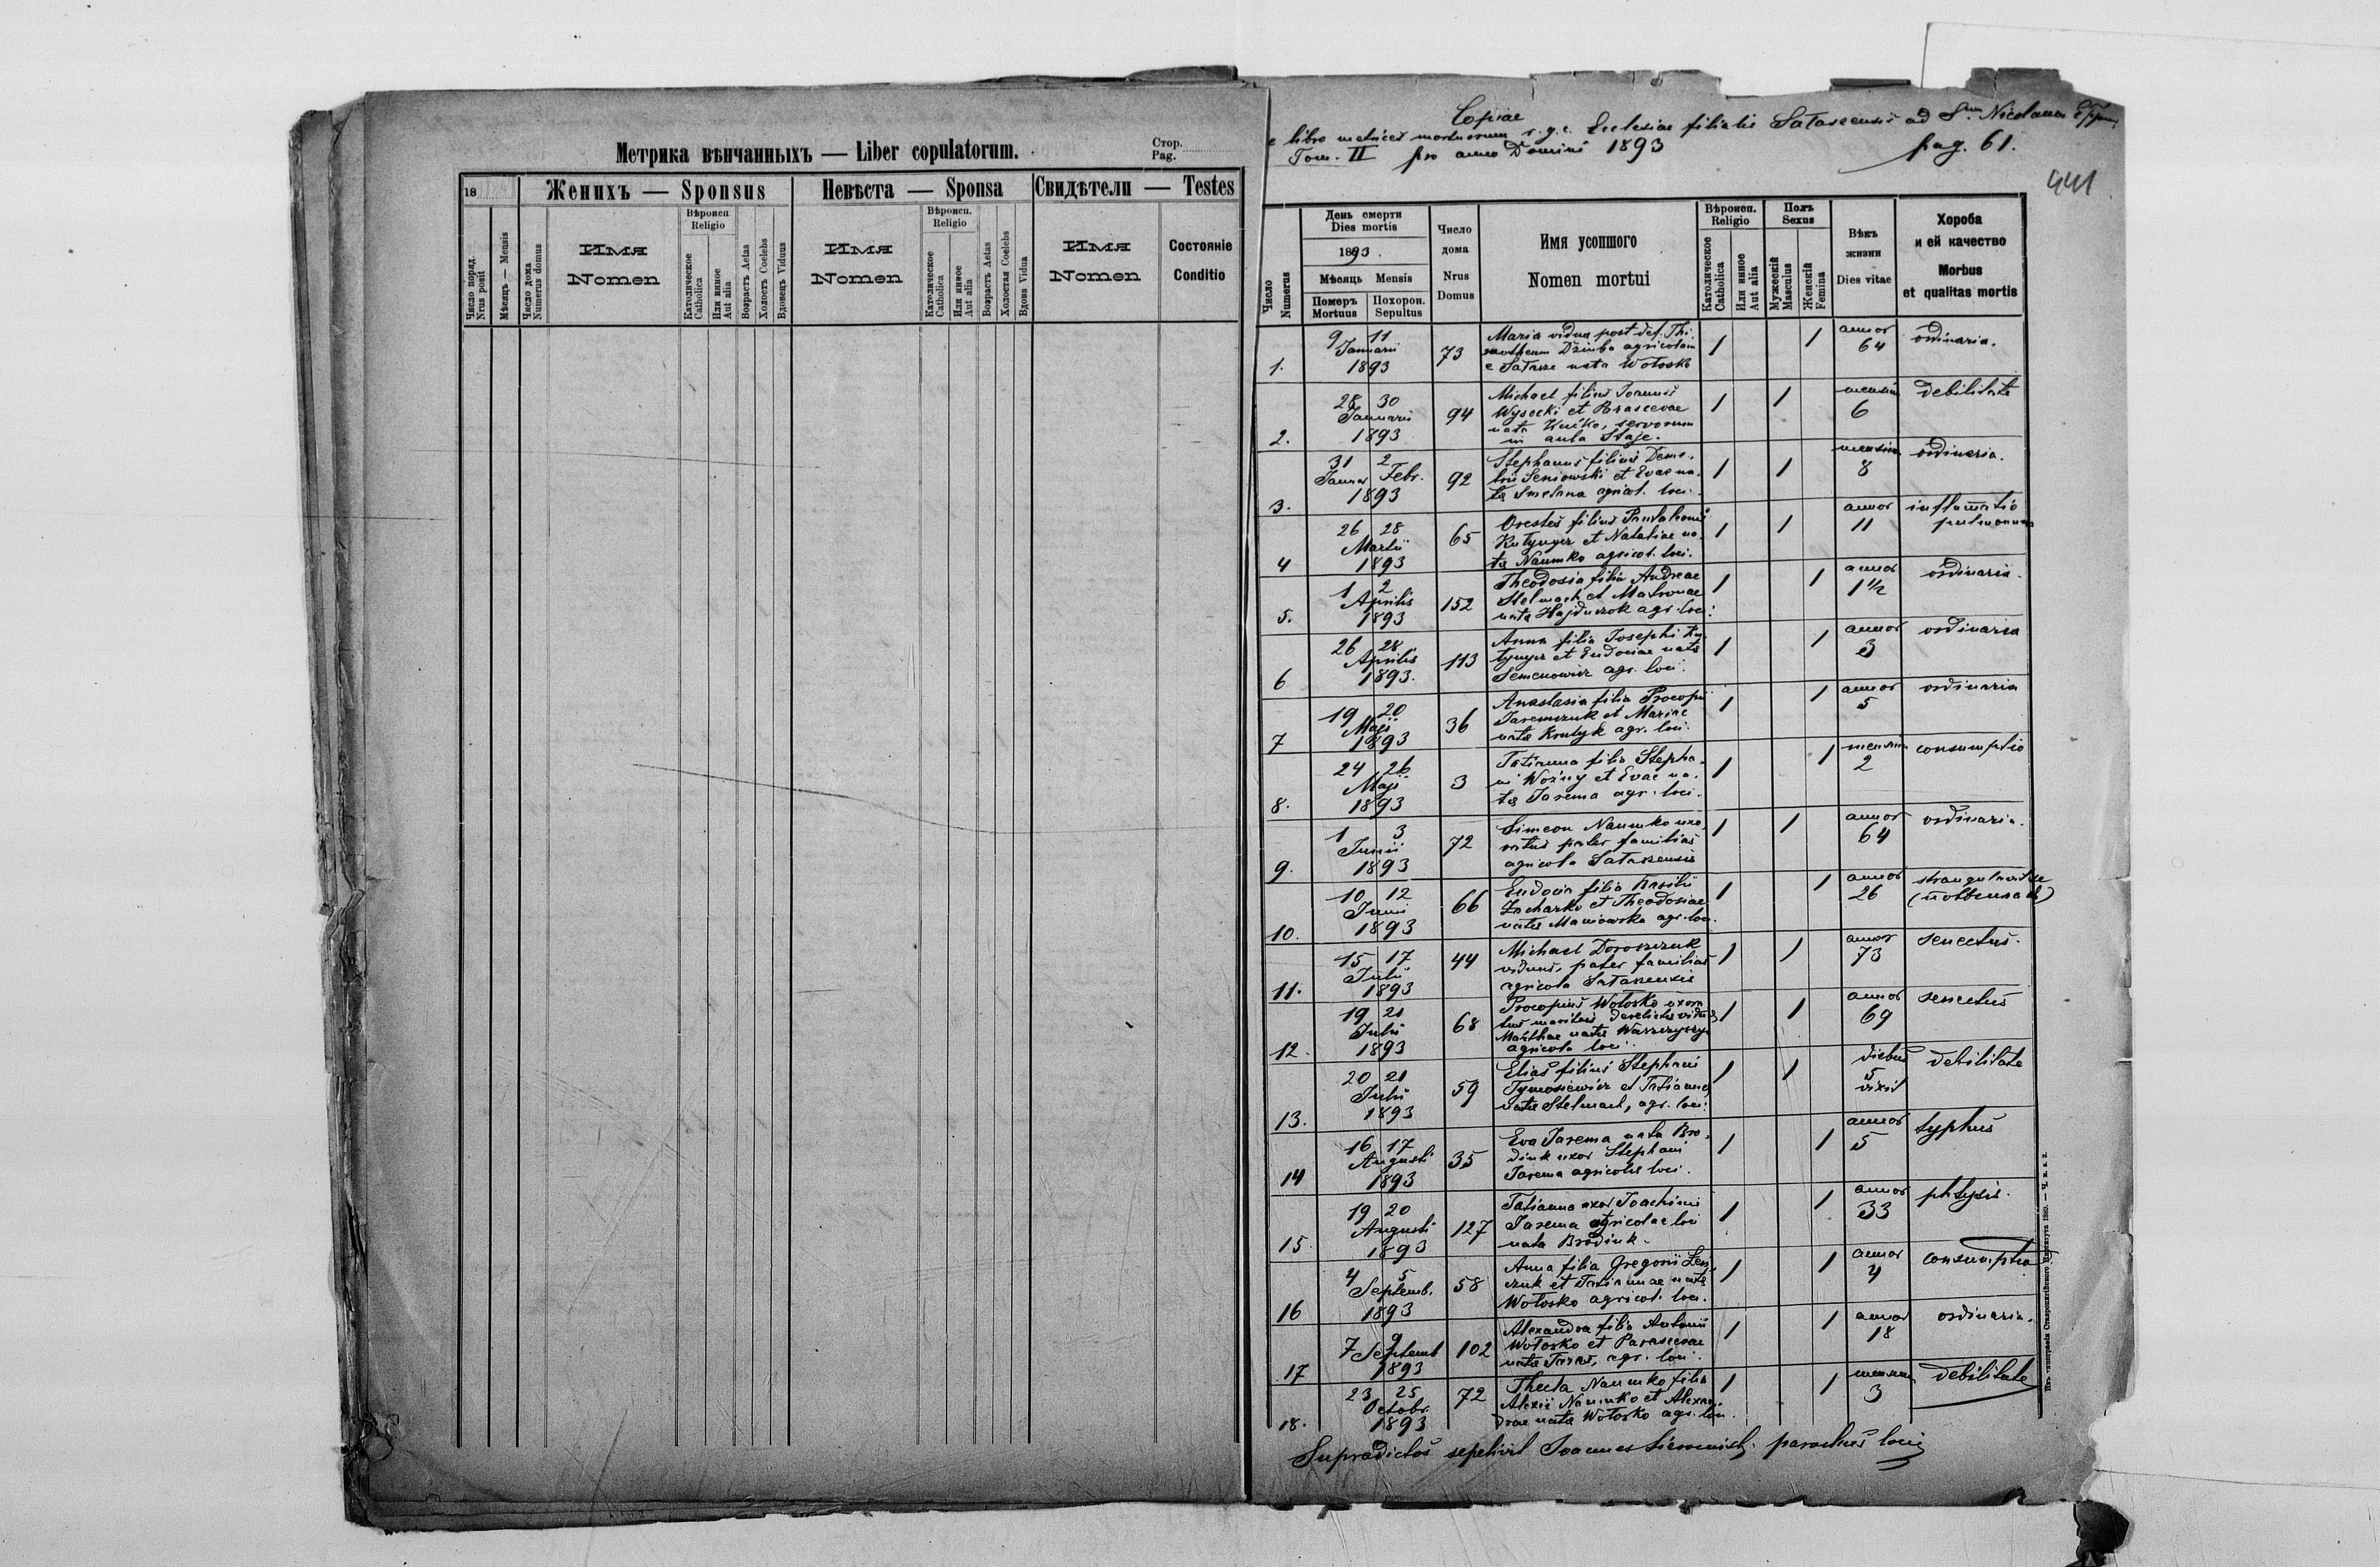 Метрика вѣнчанныхъ — Liber copulatorum.
Стор.
Pag.
18
Женихъ — Sponsus
Невѣста — Sponsa
Свидѣтели — Testes
Число поряд.
Nrus posit
Мѣсяцъ — Mensis
Число дома
Numerus domus
Имя
Nomen
Вѣроисп
Religio
Католическое
Catholica
Или инное
Aut alia
Возрастъ Aetas
Холостъ Coelebs
Вдовецъ Viduus
Имя
Nomen
Вѣроисп.
Religio
Католическое
Catholica
Или инное
Aut alia
Возрастъ Aetas
Холостая Coelebs
Вдова Vidua
Имя
Nomen
Состояніе
Conditio
Copiae
e libro metrices mortuorum r. g. c. Ecclesiae filialis Sałaseensis ad S. Nicolaum
Tom. II pro anno Domini 1893
pag. 61.
441
Число
Numerus
День смерти
Dies mortis
1893.
Мѣсяць Mensis
Померъ
Mortuus
Похорон.
Sepultus
Число
дома
Nrus
Domus
Имя усопшого
Nomen mortui
Вѣроисп.
Religio
Католическое
Catholica
Или инное
Aut alia
Полъ
Sexus
Мужескій
Masculus
Женскій
Femina
Вѣкъ
жизни
Dies vitae
Хороба
и ей качество
Morbus
et qualitas mortis
1. 9 11 Januarii 1893 73
Maria vidua post def.
Dziuba agricolam
nata Wołosko
1 1 annor 64 ordinaria.
2. 28 30 Januarii 1893 94
Michael filius Joannis
Wysocki et Parascevae
nata servorum
in aula Staje.
1 1 mensium 6 debilitate
3. 31 2 Januar Febr. 1893 92
Stephanus filius Deme-
trii Seniowski et Evae na-
ta Smetana agricol. loci.
1 1 mensium 8 ordinaria.
4 26 28 Martii 1893 65
Orestes filius Pantaleonis
Kutynycz et Nataliae na-
ta Naumko agricol. loci.
1 1 annor 11 inflamatio
pulmonum
5. 1 2 Aprilis 1893 152
Theodosia filia Andreae
Stelmach et Matronae
nata Hajduczok agr. loci.
1 1 annor 1 1/2 ordinaria.
6 26 28 Aprilis 1893. 113
Anna filia Josephi Ku-
tynycz et Eudociae nata
Semenowicz agr. loci.
1 1 annor 3 ordinaria
7 19 20 Maji 1893 36
Anastasia filia Procopii
Jaremczuk et Mariae
nata Krutyk agr. loci.
1 1 annor 5 ordinaria
8. 24 26 Maji 1893 3
Tatianna filia Stepha-
ni Woźny et Evae na-
ta Jarema agr. loci.
1 1 mensium 2 consumptio
9. 1 3 Junii 1893 72
Simeon Naumko uxo-
ratus pater familias
agricola
1 1 annor 64 ordinaria.
10. 10 12 Junii 1893 66
Eudocia filia Basilii
Zacharko et Theodosiae
nata Maniowska agr. loci.
1 1 annor 26
11. 15 17 Julii 1893 44
Michael Doroszczuk
viduus, pater familias
agricola
1 1 annor 73 senectus.
12. 19 21 Julii 1893 68
Procopius Wołosko uxora-
tus maritus derelictae viduae
Marthae nata
agricola loci
1 1 annor 69 senectus
13. 20 21 Julii 1893 59
Elias filius Stephani
Tymosiewicz et Tatiannae
nata Stelmach, agr. loci.
1 1 diebus 5 vixit debilitate
14 16 17 Augusti 1893 35
Eva Jarema nata Bro-
diuk uxor Stephani
Jarema agricola loci.
1 1 annor 5 typhus
15 19 20 Augusti 1893 127
Tatianna uxor Joachimi
Jarema agricolae loci
nata Brodiuk.
1 1 annor 33 phtysis.
16 4 5 Septemb. 1893 58
Anna filia Gregorii
et Tatiannae nata
Wołosko agricol. loci.
1 1 annor 4 consumptio
17 7 9 Septemb 1893 102
Alexandra filia Antonii
Wołosko et Parascevae
nata Taras, agr. loci.
1 1 annor 18 ordinaria.
18. 23 25 Octobr. 1893 72
Thecla Naumko filia
Alexii Naumko et Alexan-
drae nata Wołosko agr. loci.
1 1 mensium 3 debilitate
Supradictos sepelivit Joannes parochus loci